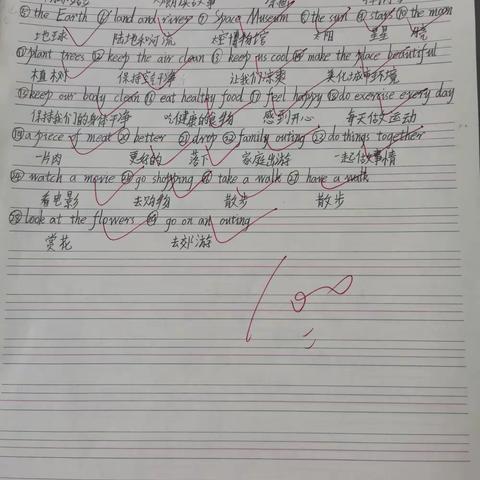 ⑤the Earth ⑥land and rivers ⑦Space Museum ⑧the sun ⑨stars ⑩the moon
地球 陆地和河流 太空博物馆 太阳 星星 月亮
⑪plant trees ⑫keep the air clean ⑬keep us cool ⑭make the place beautiful
植树 保持空气干净 让我们凉爽 美化城市环境
⑮keep our body clean ⑯eat healthy food ⑰feel happy ⑱do exercise every day
保持我们的身体干净 吃健康的食物 感到开心 每天做运动
⑲a piece of meat ⑳better ㉑drop ㉒family outing ㉓do things together
一片肉 更好的 落下 家庭出游 一起做事情
㉔watch a movie ㉕go shopping ㉖take a walk ㉗have a walk
看电影 去购物 散步 散步
㉘look at the flowers ㉙go on an outing
赏花 去郊游
100